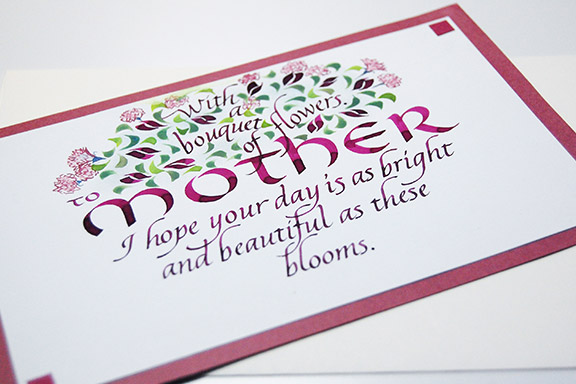 With
a
bouquet
of flowers.
TO
MOTHER
I hope your day is as bright
and beautiful as these
blooms.